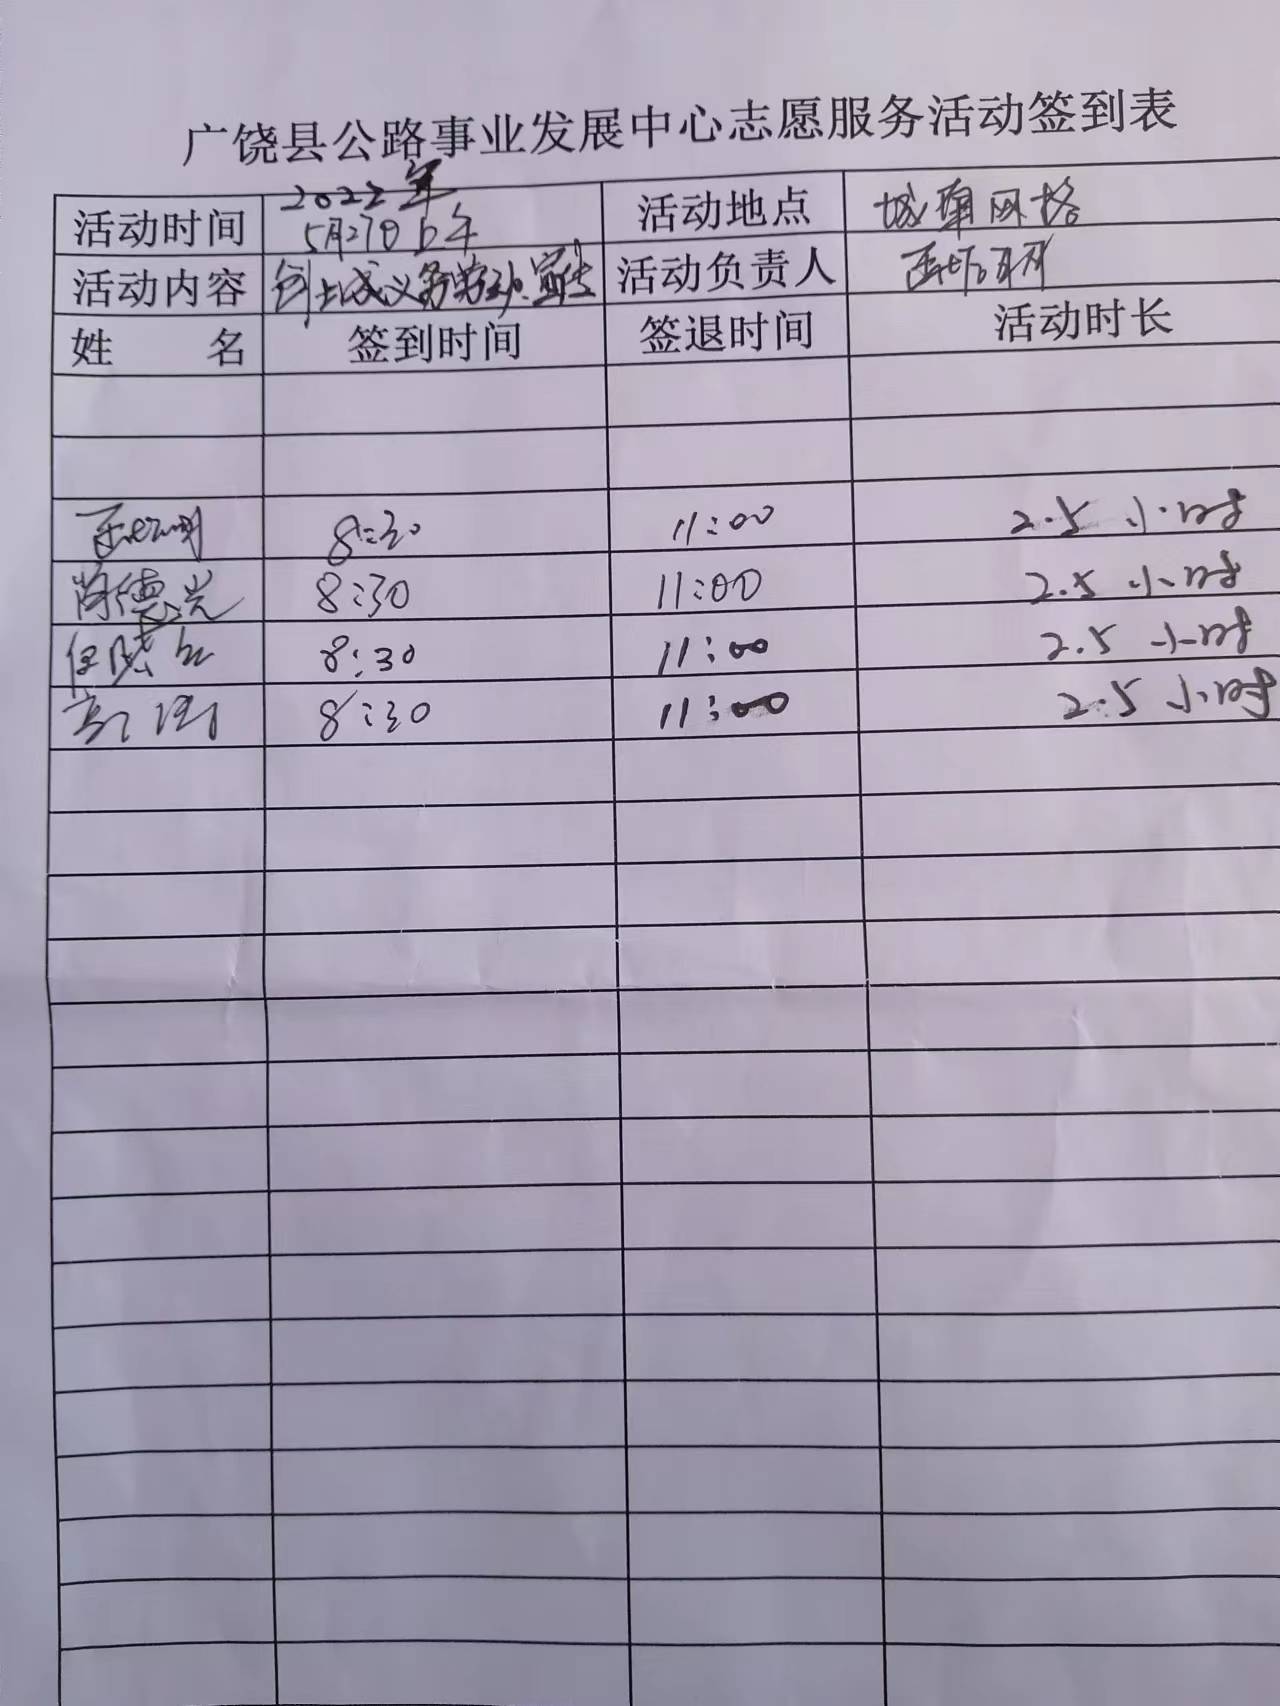 广饶县公路事业发展中心志愿服务活动签到表
活动时间 2022年 5月27日上午 活动地点 城 网格
活动内容 创城义务劳动宣传 活动负责人
姓 名 签到时间 签退时间 活动时长
8:30 11:00 2.5 小时
德光 8:30 11:00 2.5 小时
任 8:30 11:00 2.5 小时
高 8:30 11:00 2.5 小时